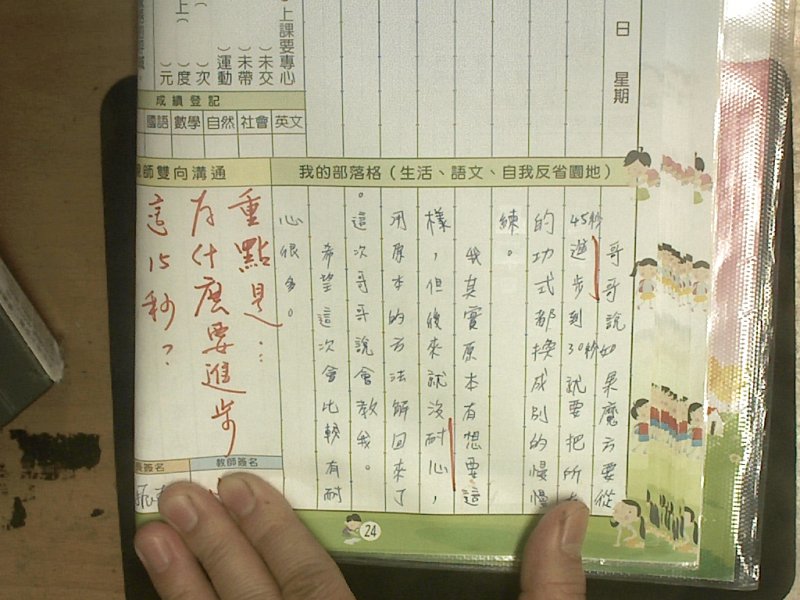 日 星期
上課要專心
（）未交
（）未帶
（）運動
（）次
（）度
（）元
上）
成績登記
國語 數學 自然 社會 英文
我的部落格（生活、語文、自我反省園地）
師雙向溝通
哥哥說如果魔方要從
45秒進步到30秒就要把所
的功式都換成別的慢慢
練。
我其實原本有想要這
樣，但後來就沒耐心，
用原本的方法解回來了
。這次哥哥說會教我。
希望這次會比較有耐
心很多。
重點是：
為什麼要進步
這15秒？
長簽名
教師簽名
24